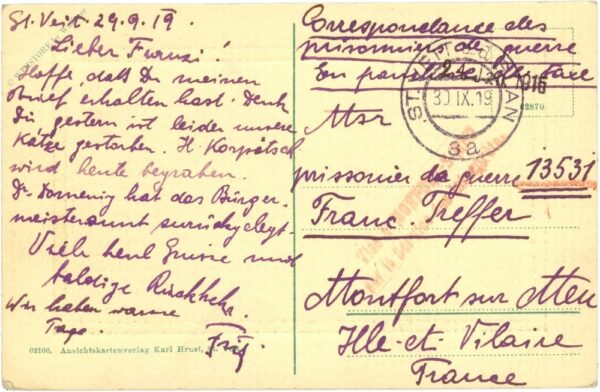 St. Veit. 29.9.19.
Lieber Franzi!
Hoffe, daß Du meinen
Brief erhalten hast. Denk
Dir gestern ist leider unsere
Katze gestorben. H. Korpitsch
wird heute begraben.
Dr. Domenig hat das Bürger-
meisteramt zurückgelegt.
Viele herzl. Grüsse und
baldige Rückkehr.
Wir haben warme
Tage.
Fritz
02160. Ansichtskartenverlag Karl Hrust,
Correspondance des
prisonniers de guerre
En
ST. VEIT
30.IX.19
3a
02870
Msr
prissonier de guerre 13531
Franc. Treffer
Montfort sur Meu
Ille-et-Vilaire
France